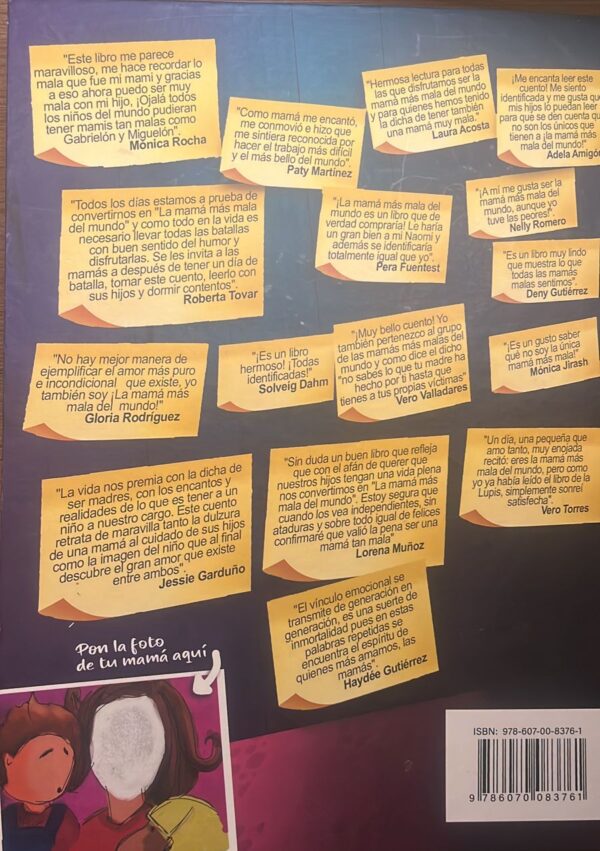 "Este libro me parece
maravilloso, me hace recordar lo
mala que fue mi mami y gracias
a eso ahora puedo ser muy
mala con mi hijo, ¡Ojalá todos
los niños del mundo pudieran
tener mamis tan malas como
Gabrielón y Miguelón".
Mónica Rocha
"Como mamá me encantó,
me conmovió e hizo que
me sintiera reconocida por
hacer el trabajo más difícil
y el más bello del mundo".
Paty Martínez
"Hermosa lectura para todas
las que disfrutamos ser la
mamá más mala del mundo
y para quienes hemos tenido
la dicha de tener también
una mamá muy mala."
Laura Acosta
¡Me encanta leer este
cuento! Me siento
identificada y me gusta que
mis hijos lo puedan leer
para que se den cuenta que
no son los únicos que
tienen a ¡la mamá más
mala del mundo!"
Adela Amigón
"Todos los días estamos a prueba de
convertirnos en "La mamá más mala
del mundo" y como todo en la vida es
necesario llevar todas las batallas
con buen sentido del humor y
disfrutarlas. Se les invita a las
mamás a después de tener un día de
batalla, tomar este cuento, leerlo con
sus hijos y dormir contentos".
Roberta Tovar
"¡La mamá más mala del
mundo es un libro que de
verdad compraría! Le haría
un gran bien a mi Naomi y
además se identificaría
totalmente igual que yo".
Pera Fuentest
"¡A mí me gusta ser la
mamá más mala del
mundo, aunque yo
tuve las peores!".
Nelly Romero
"Es un libro muy lindo
que muestra lo que
todas las mamás
malas sentimos".
Deny Gutiérrez
"No hay mejor manera de
ejemplificar el amor más puro
e incondicional que existe, yo
también soy ¡La mamá más
mala del mundo!"
Gloria Rodríguez
"¡Es un libro
hermoso! ¡Todas
identificadas!"
Solveig Dahm
"¡Muy bello cuento! Yo
también pertenezco al grupo
de las mamás más malas del
mundo y como dice el dicho
"no sabes lo que tu madre ha
hecho por ti hasta que
tienes a tus propias víctimas"
Vero Valladares
"¡Es un gusto saber
qué no soy la única
mamá más mala!"
Mónica Jirash
"La vida nos premia con la dicha de
ser madres, con los encantos y
realidades de lo que es tener a un
niño a nuestro cargo. Este cuento
retrata de maravilla tanto la dulzura
de una mamá al cuidado de sus hijos
como la imagen del niño que al final
descubre el gran amor que existe
entre ambos".
Jessie Garduño
"Sin duda un buen libro que refleja
que con el afán de querer que
nuestros hijos tengan una vida plena
nos convertimos en "La mamá más
mala del mundo". Estoy segura que
cuando los vea independientes, sin
ataduras y sobre todo igual de felices
confirmaré que valió la pena ser una
mamá tan mala"
Lorena Muñoz
"Un día, una pequeña que
amo tanto, muy enojada
recitó: eres la mamá más
mala del mundo, pero como
yo ya había leído el libro de la
Lupis, simplemente sonreí
satisfecha".
Vero Torres
"El vínculo emocional se
transmite de generación en
generación, es una suerte de
inmortalidad pues en estas
palabras repetidas se
encuentra el espíritu de
quienes más amamos, las
mamás".
Haydée Gutiérrez
Pon la foto
de tu mamá aquí
ISBN: 978-607-00-8376-1
9 786070 083761